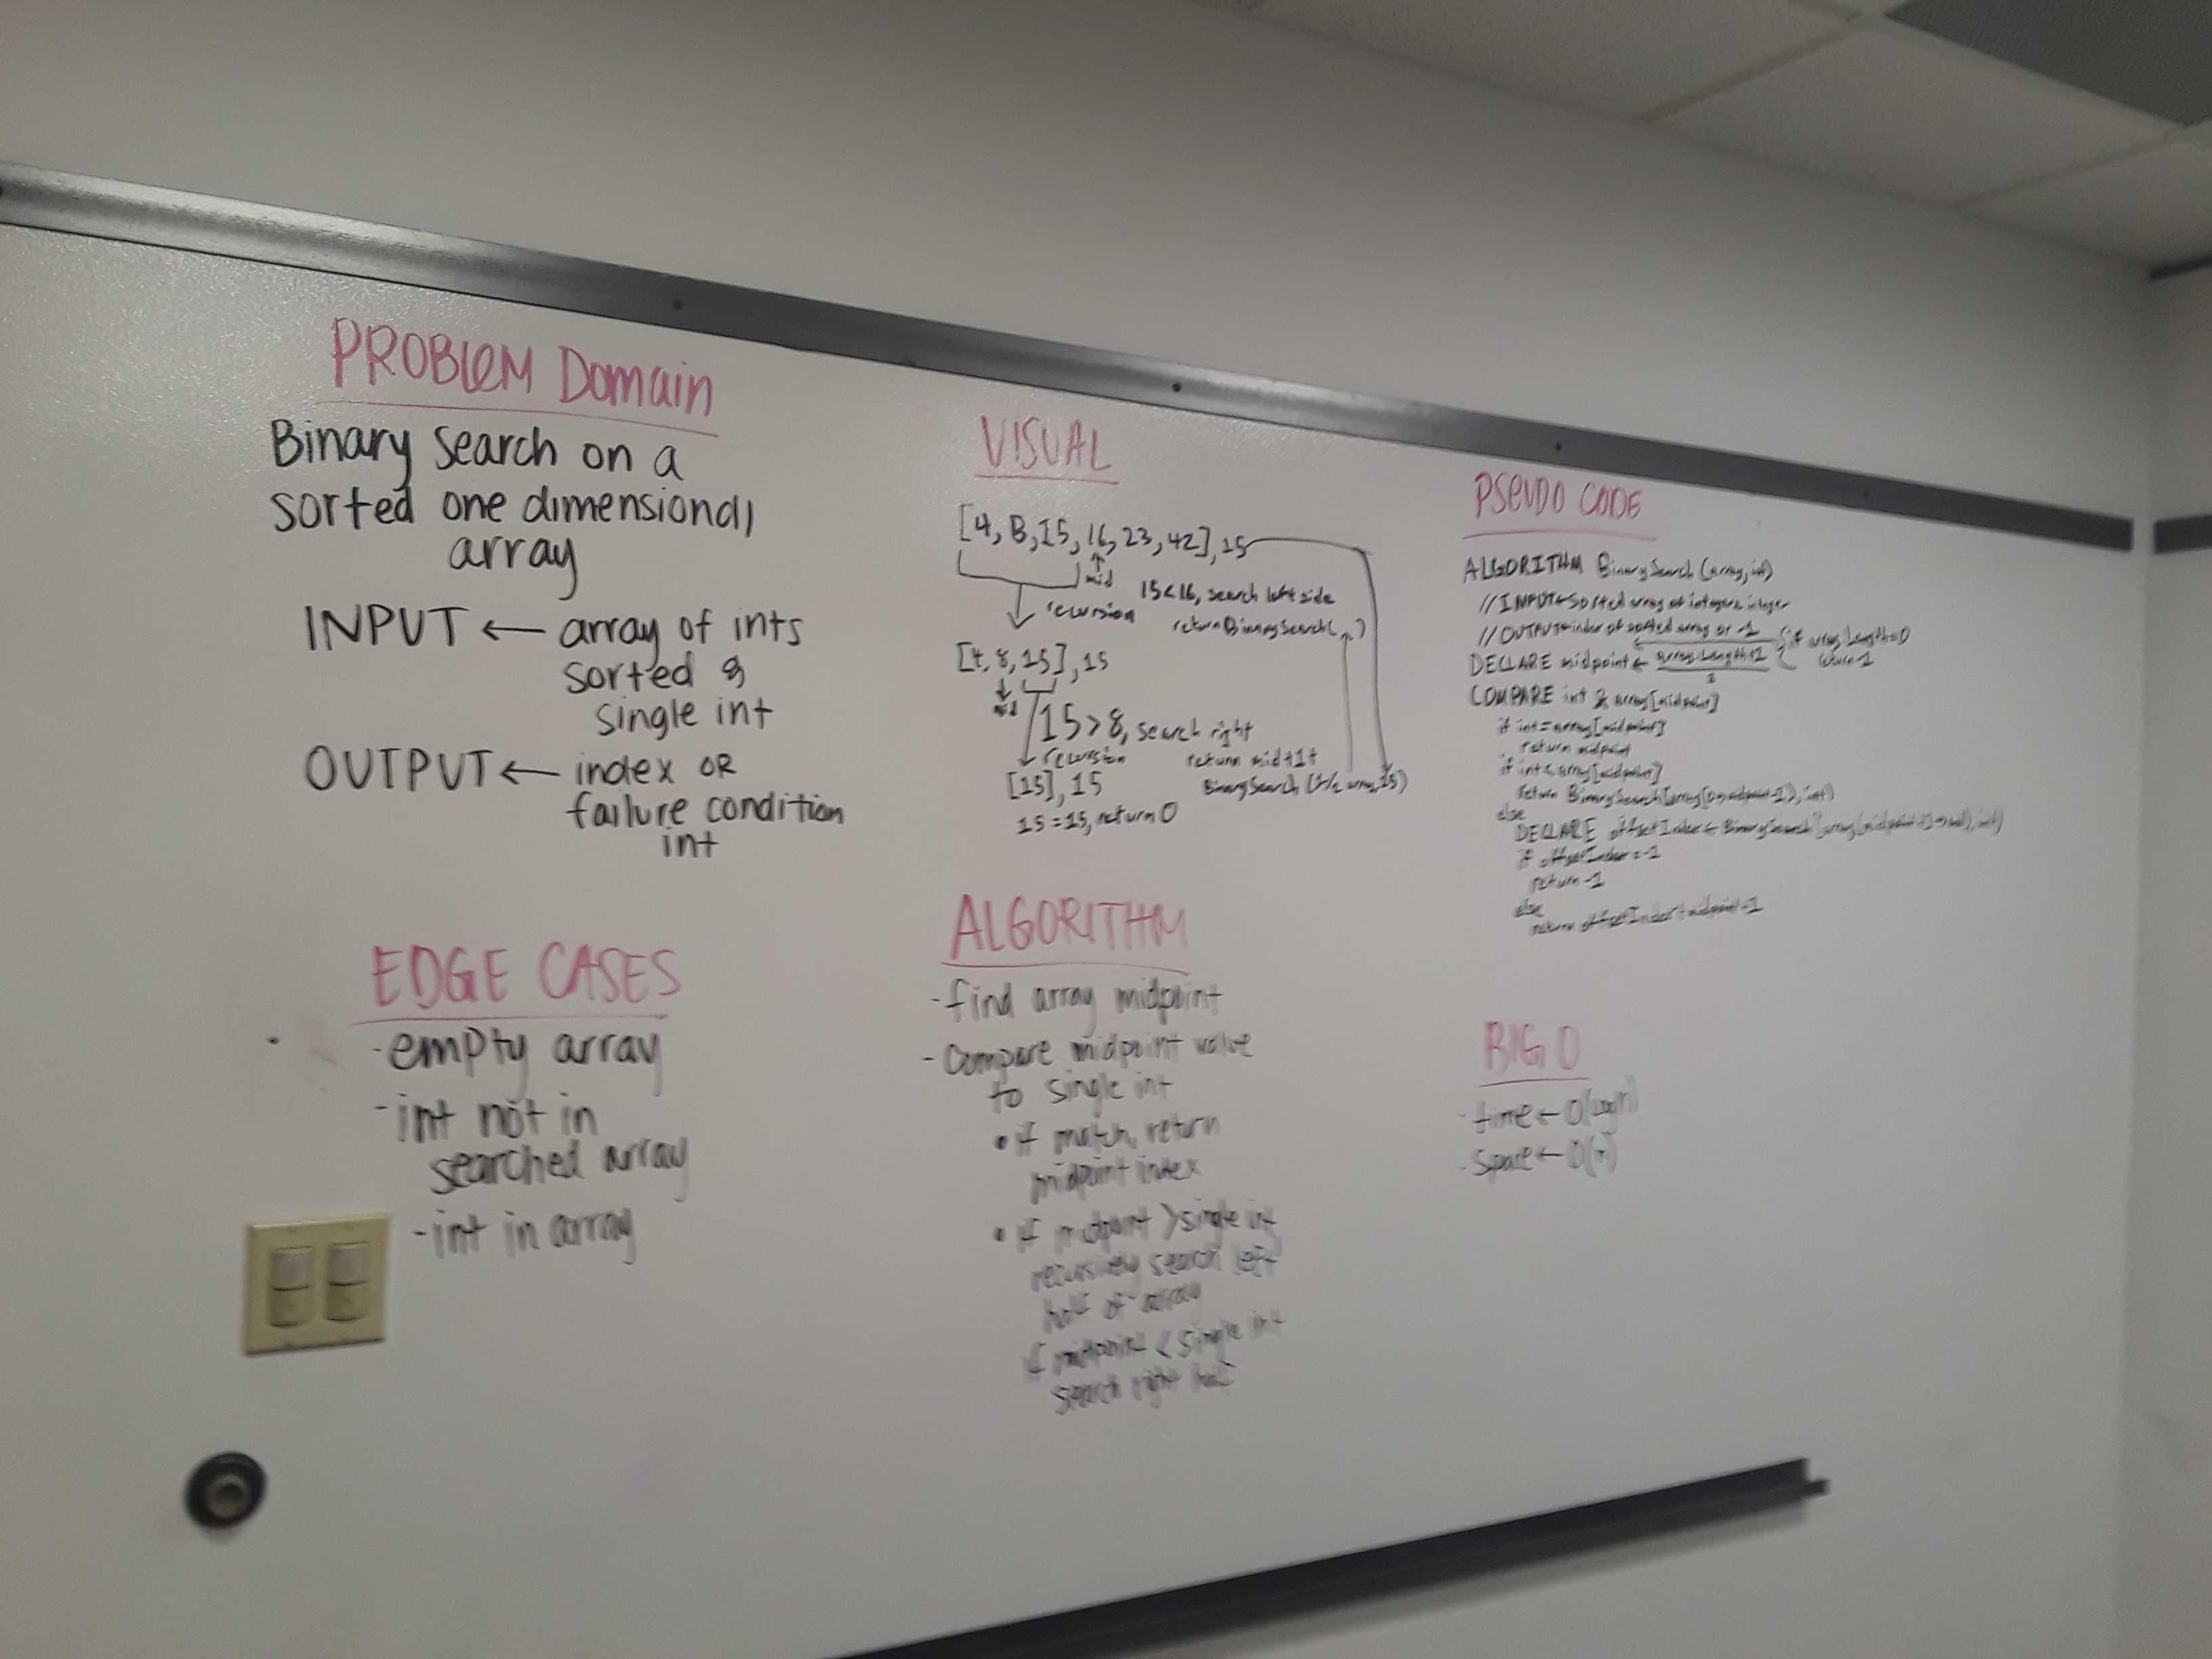 PROBLEM Domain
Binary search on a
sorted one dimensional
array
INPUT ← array of ints
sorted &
single int
OUTPUT ← index OR
failure condition
int
EDGE CASES
- empty array
- int not in
searched array
- int in array
VISUAL
[4, 8, 15, 16, 23, 42], 15
mid
15 < 16, search left side
recursion
return BinarySearch( , )
[4, 8, 15], 15
mid
15 > 8, search right
recursion
return mid + 1 +
[15], 15
BinarySearch (1/2 array, 15)
15 = 15, return 0
ALGORITHM
- find array midpoint
- Compare midpoint value
to single int
• if match, return
midpoint index
• if midpoint > single int
recursively search left
half of array
if midpoint < single int
search right half
PSEUDO CODE
ALGORITHM BinarySearch (array, int)
// INPUT ← sorted array of integers, integer
// OUTPUT ← index of sorted array or -1
if array.length = 0
return -1
DECLARE midpoint ← array.length + 1
2
COMPARE int & array[midpoint]
if int = array[midpoint]
return midpoint
if int < array[midpoint]
return BinarySearch(array[0 → midpoint - 1], int)
else
DECLARE offsetIndex ← BinarySearch(array[midpoint + 1 → end], int)
if offsetIndex = -1
return -1
else
return offsetIndex + midpoint + 1
BIG O
- time ← O(log n)
- Space ← O(n)